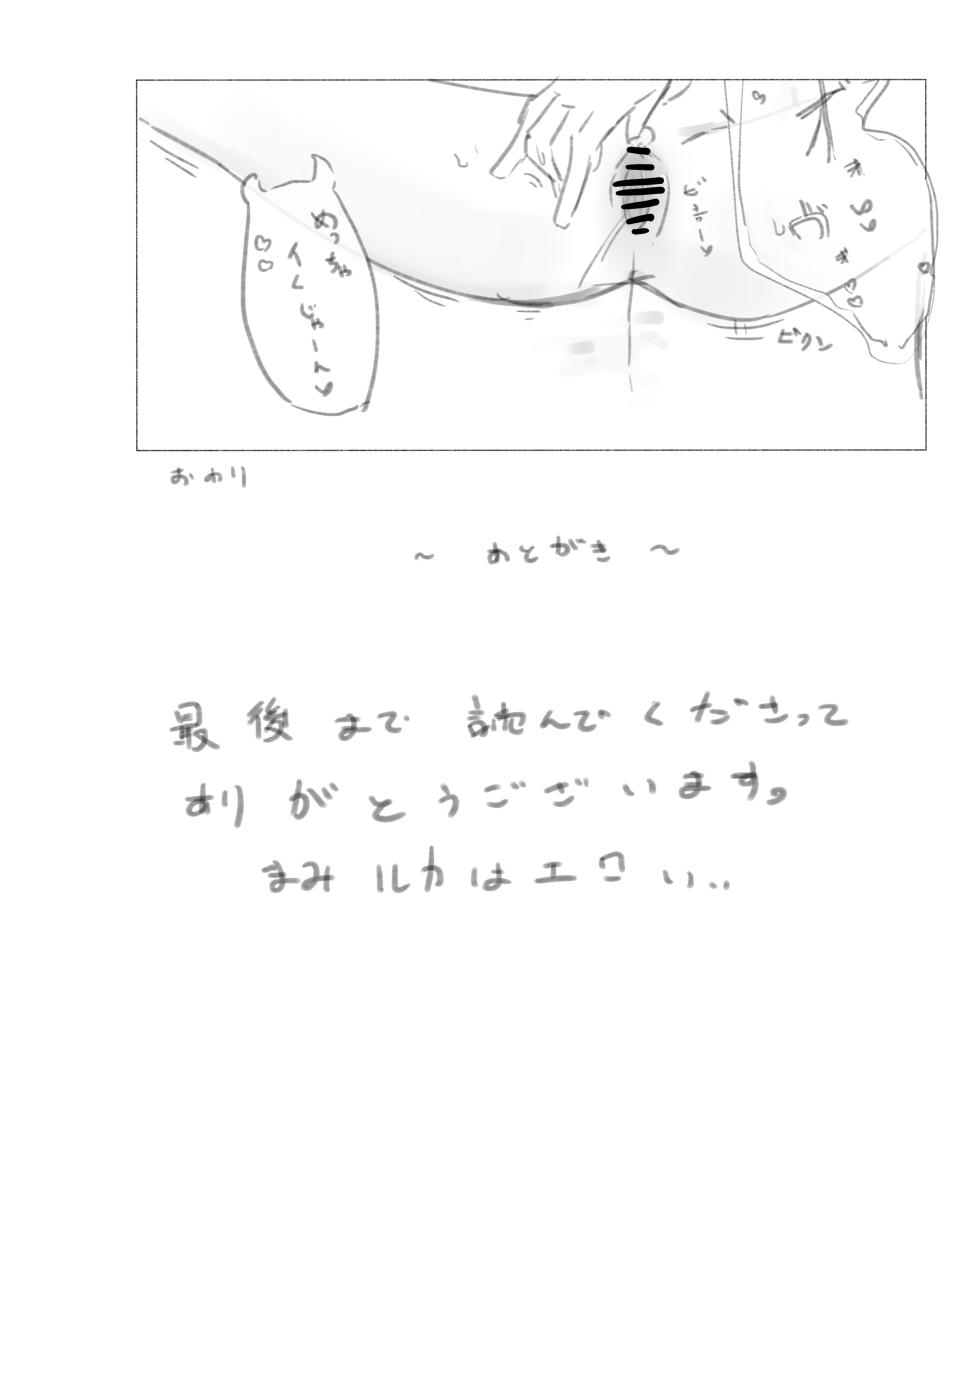 ビクン
めっちゃ
イく
じゃーん
おわり
～ あとがき ～
最後まで 読んでくださって
ありがとうございます。
まみルカはエロい..